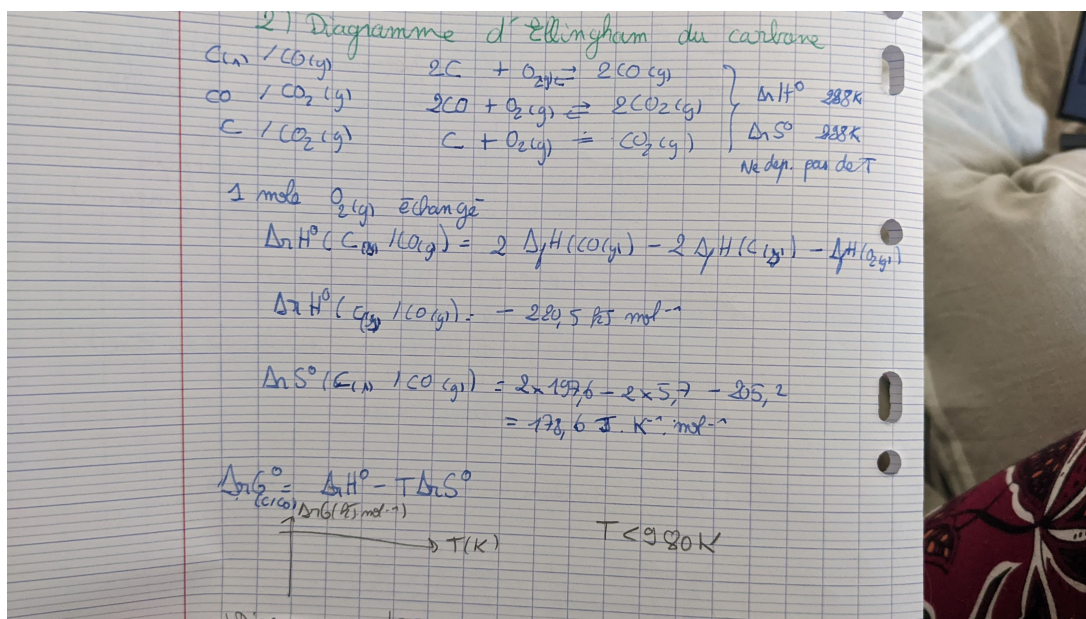 2) Diagramme d'Ellingham du carbone
C(s) / CO(g) 2C + O2(g) ⇌ 2CO(g)
CO / CO2(g) 2CO + O2(g) ⇌ 2CO2(g) ΔrH° 298K
C / CO2(g) C + O2(g) = CO2(g) ΔrS° 298K
Ne dep. pas de T
1 mole O2(g) échangé
ΔrH°(C(s) / CO(g)) = 2 ΔfH(CO(g)) - 2 ΔfH(C(s)) - ΔfH(O2(g))
ΔrH°(C(s) / CO(g)) = - 220,5 kJ mol-1
ΔrS°(C(s) / CO(g)) = 2x197,6 - 2x5,7 - 205,2
= 178,6 J. K-1. mol-1
ΔrG°(C/CO) = ΔrH° - TΔrS°
ΔrG(kJ mol-1)
T(K) T < 980K